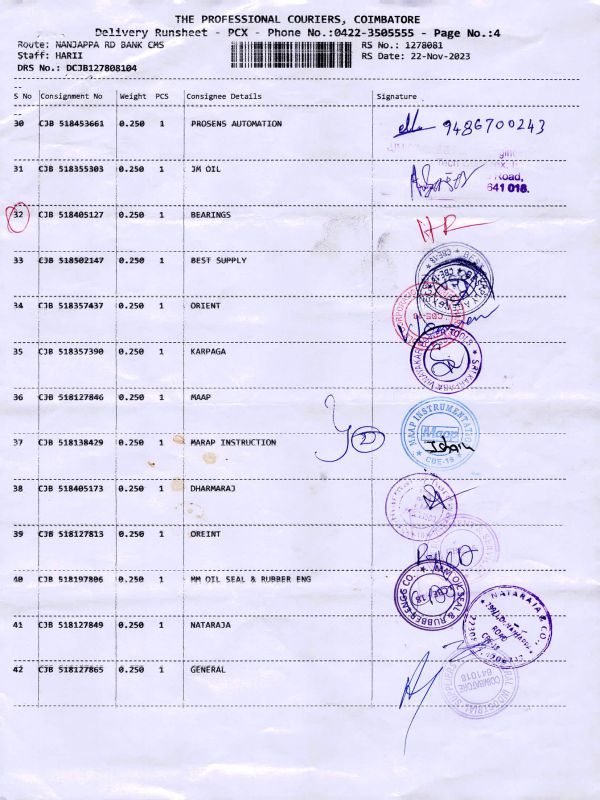 THE PROFESSIONAL COURIERS, COIMBATORE
Delivery Runsheet - PCX - Phone No.:0422-3505555 - Page No.:4
Route: NANJAPPA RD BANK CMS RS No.: 1278081
Staff: HARII RS Date: 22-Nov-2023
DRS No.: DCJB127808104
S No Consignment No Weight PCS Consignee Details Signature
30 CJB 518453661 0.250 1 PROSENS AUTOMATION 9486700243
31 CJB 518355303 0.250 1 JM OIL Road, 641 018.
32 CJB 518405127 0.250 1 BEARINGS HR
33 CJB 518502147 0.250 1 BEST SUPPLY
34 CJB 518357437 0.250 1 ORIENT CBE-18
35 CJB 518357390 0.250 1 KARPAGA
36 CJB 518127846 0.250 1 MAAP MAAP INSTRUMENTATION Maap CBE-18
37 CJB 518138429 0.250 1 MARAP INSTRUCTION
38 CJB 518405173 0.250 1 DHARMARAJ
39 CJB 518127813 0.250 1 OREINT
40 CJB 518197806 0.250 1 MM OIL SEAL & RUBBER ENG MM OIL SEAL & RUBBER ENGG CO.
41 CJB 518127849 0.250 1 NATARAJA NATARAJA & CO. ROAD CBE-18
42 CJB 518127865 0.250 1 GENERAL COIMBATORE 641018 INDUSTRIAL SUPPLIERS